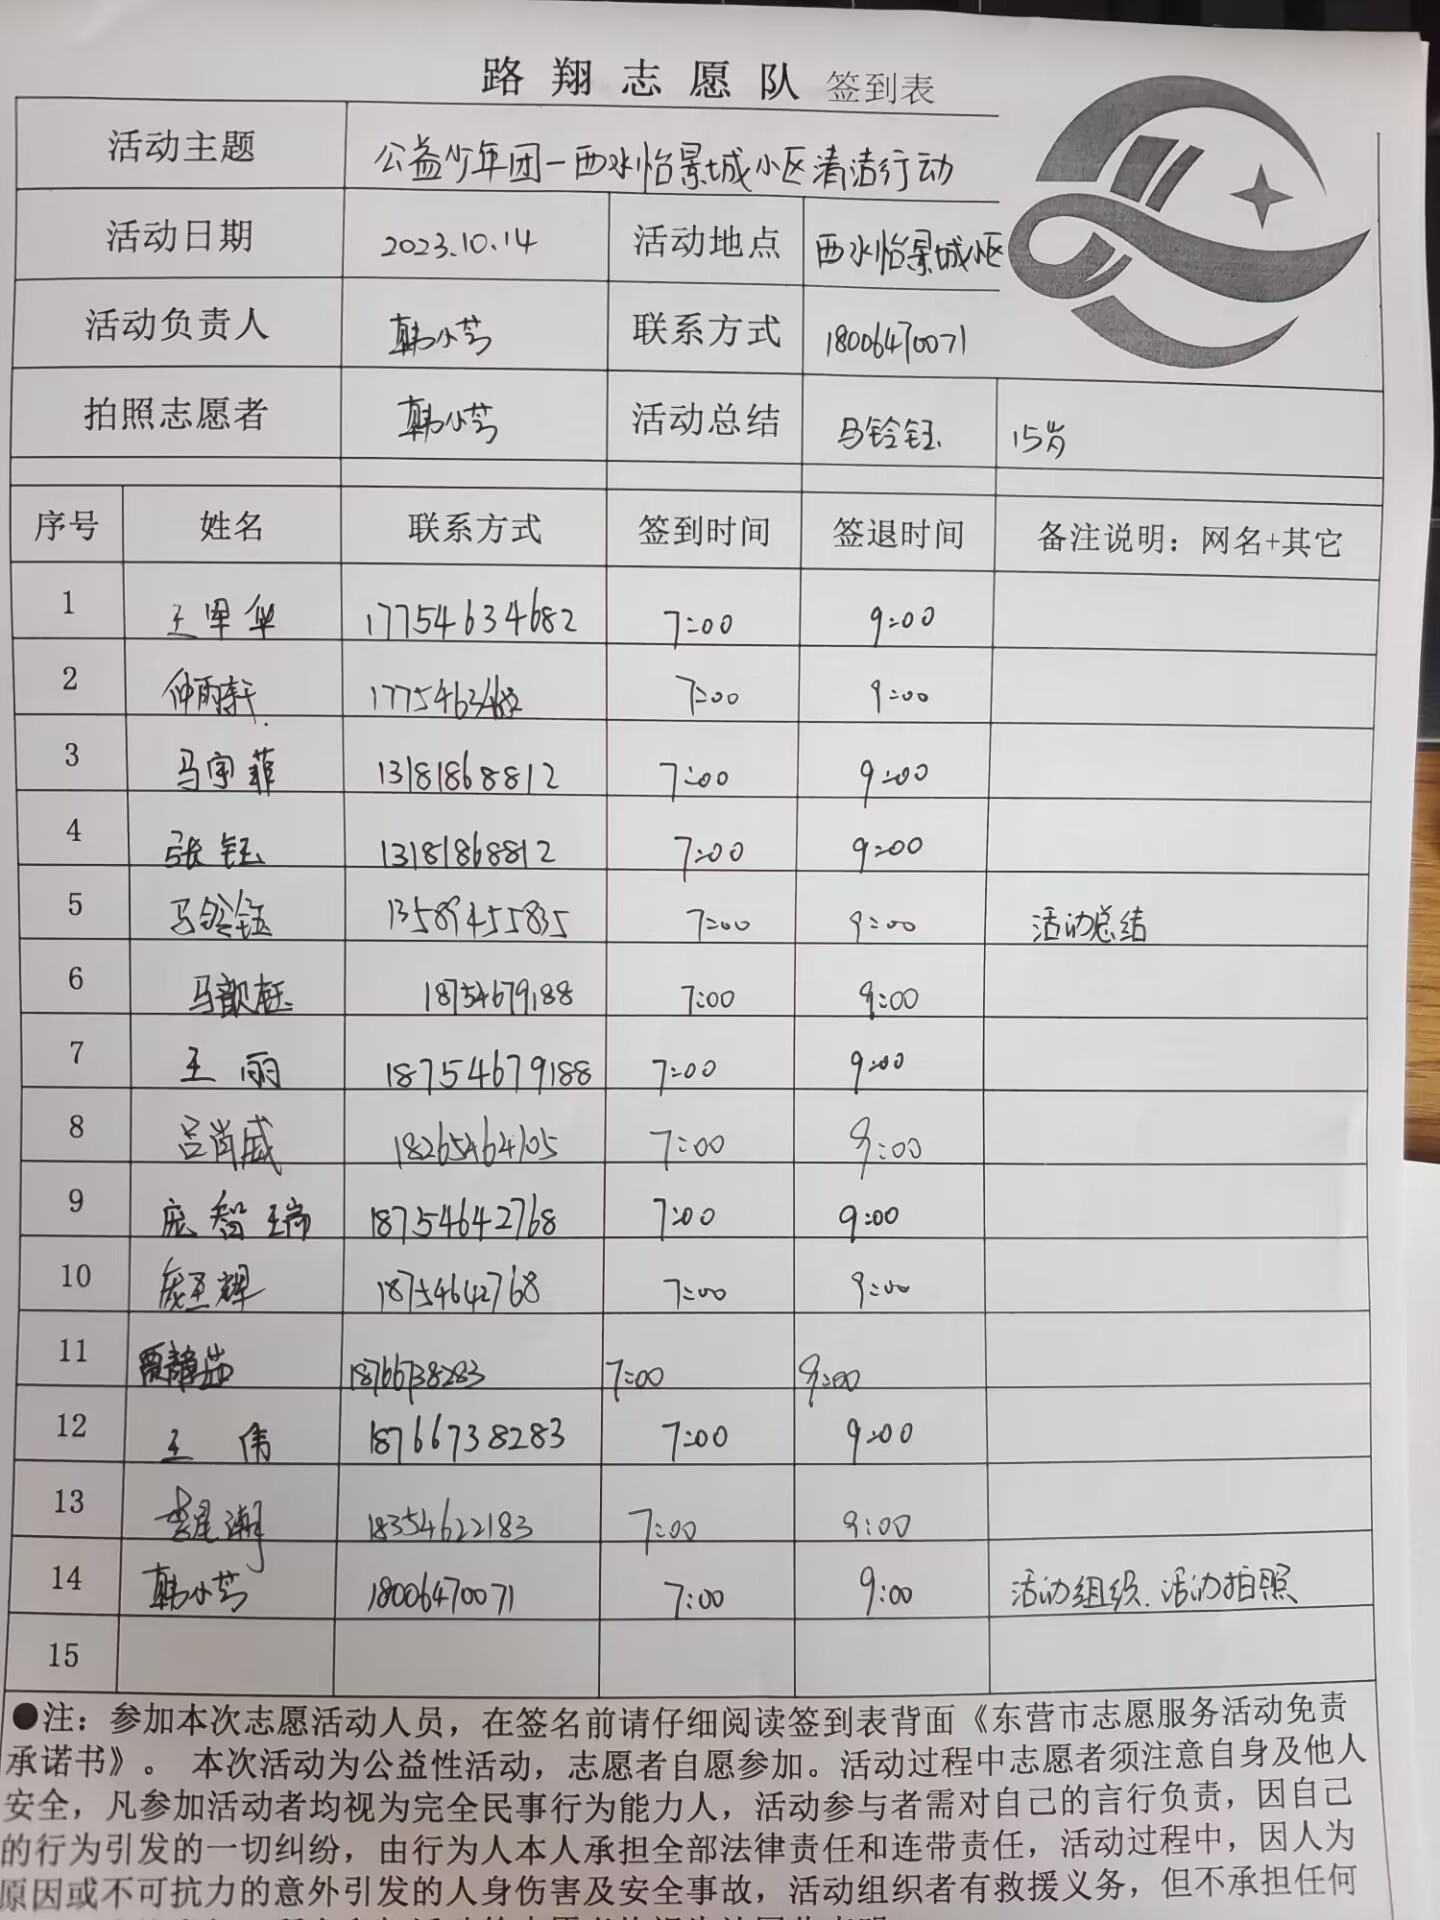 路翔志愿队 签到表
活动主题 公益少年团一西水怡景城小区清洁行动
活动日期 2023.10.14 活动地点 西水怡景城小区
活动负责人 韩小芳 联系方式 18006470071
拍照志愿者 韩小芳 活动总结 马铃钰 15岁
序号 姓名 联系方式 签到时间 签退时间 备注说明：网名+其它
1 王军华 17754634682 7:00 9:00
2 仲雨轩 17754634682 7:00 9:00
3 马宇菲 13181868812 7:00 9:00
4 张钰 13181868812 7:00 9:00
5 马铃钰 13589455835 7:00 9:00 活动总结
6 马歆钰 18754679188 7:00 9:00
7 王丽 18754679188 7:00 9:00
8 吕尚威 18265464105 7:00 9:00
9 庞智瑞 18754642768 7:00 9:00
10 庞玉辉 18754642768 7:00 9:00
11 贾静茹 18766738283 7:00 9:00
12 王伟 18766738283 7:00 9:00
13 李星潮 18354622183 7:00 9:00
14 韩小芳 18006470071 7:00 9:00 活动组织、活动拍照
15
●注：参加本次志愿活动人员，在签名前请仔细阅读签到表背面《东营市志愿服务活动免责
承诺书》。 本次活动为公益性活动，志愿者自愿参加。活动过程中志愿者须注意自身及他人
安全，凡参加活动者均视为完全民事行为能力人，活动参与者需对自己的言行负责，因自己
的行为引发的一切纠纷，由行为人本人承担全部法律责任和连带责任，活动过程中，因人为
原因或不可抗力的意外引发的人身伤害及安全事故，活动组织者有救援义务，但不承担任何